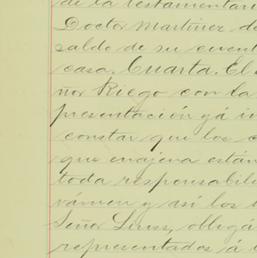 de la testamentari
Doctor Martinez de
saldo de su cuent
casa. Cuarta. El
ñor Riego con la
presentación yá in
constar que los c
que enajena están
toda responsabili
vámen y así los
Señor Lerus, obligá
representados á